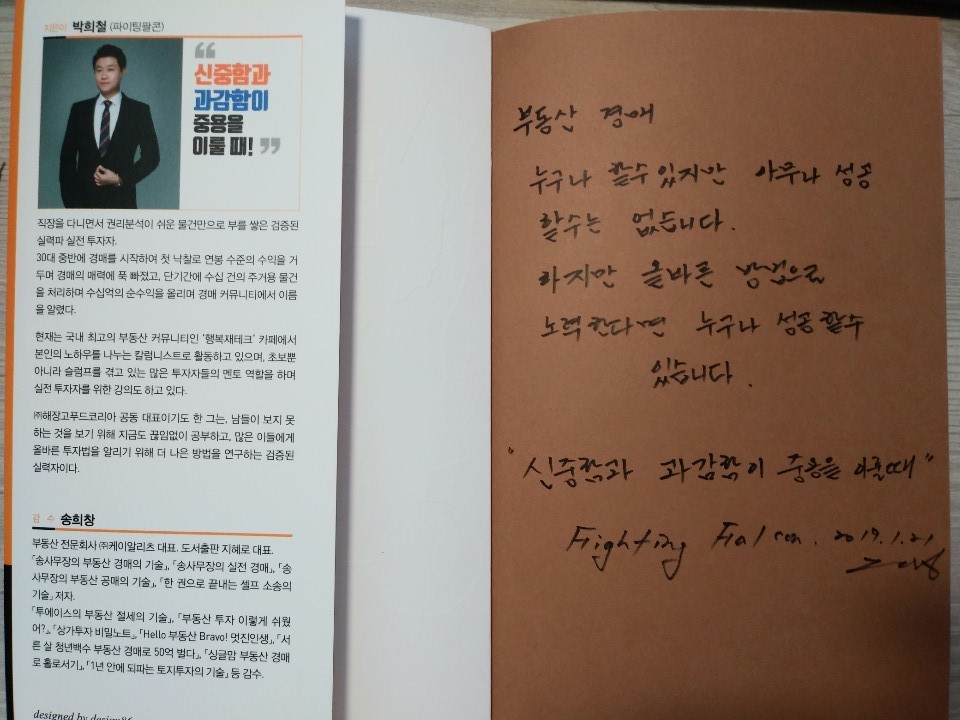 지은이 박희철 (파이팅팔콘)
“
신중함과
과감함이
중용을
이룰 때! ”
직장을 다니면서 권리분석이 쉬운 물건만으로 부를 쌓은 검증된
실력파 실전 투자자.
30대 중반에 경매를 시작하여 첫 낙찰로 연봉 수준의 수익을 거
두며 경매의 매력에 푹 빠졌고, 단기간에 수십 건의 주거용 물건
을 처리하며 수십억의 순수익을 올리며 경매 커뮤니티에서 이름
을 알렸다.
현재는 국내 최고의 부동산 커뮤니티인 ‘행복재테크’ 카페에서
본인의 노하우를 나누는 칼럼니스트로 활동하고 있으며, 초보뿐
아니라 슬럼프를 겪고 있는 많은 투자자들의 멘토 역할을 하며
실전 투자자를 위한 강의도 하고 있다.
㈜해장고푸드코리아 공동 대표이기도 한 그는, 남들이 보지 못
하는 것을 보기 위해 지금도 끊임없이 공부하고, 많은 이들에게
올바른 투자법을 알리기 위해 더 나은 방법을 연구하는 검증된
실력자이다.
감 수 송희창
부동산 전문회사 ㈜케이알리츠 대표. 도서출판 지혜로 대표.
「송사무장의 부동산 경매의 기술」, 「송사무장의 실전 경매」, 「송
사무장의 부동산 공매의 기술」, 「한 권으로 끝내는 셀프 소송의
기술」 저자.
「투에이스의 부동산 절세의 기술」, 「부동산 투자 이렇게 쉬웠
어?」, 「상가투자 비밀노트」, 「Hello 부동산 Bravo! 멋진인생」, 「서
른 살 청년백수 부동산 경매로 50억 벌다」, 「싱글맘 부동산 경매
로 홀로서기」, 「1년 안에 되파는 토지투자의 기술」 등 감수.
designed by design86
부동산 경매
누구나 할수있지만 아무나 성공
할수는 없습니다.
하지만 올바른 방법으로
노력한다면 누구나 성공할수
있습니다.
"신중함과 과감함이 중용을 이룰때"
Fighting Falcon. 2019.1.21